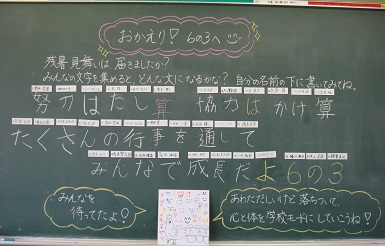 おかえり! 6の3へ
残暑見舞いは届きましたか?
みんなの文字を集めると、どんな文になるかな? 自分の名前の下に書いてみてね。
努力はたし算 協力はかけ算
たくさんの行事を通して
みんなで成長だよ 6の3
みんなを
待ってたよ!
あわただしいけど落ちついて、
心と体を学校モードにしていこうね!